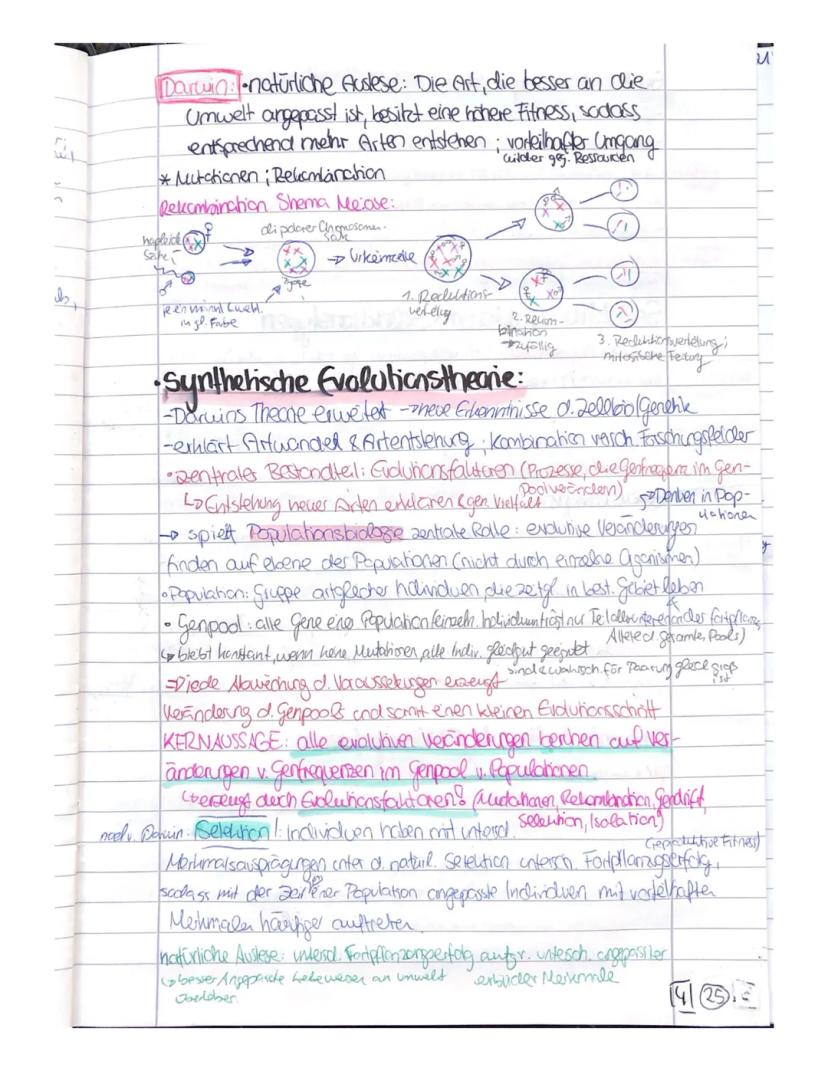 Darwin: • natürliche Auslese: Die Art, die besser an die
Umwelt angepasst ist, besitzt eine höhere Fitness, sodass
entsprechend mehr Arten entstehen ; vorteilhafter Umgang
* Mutationen ; Rekombination
Rekombination Shema Meiose:
haploide
dipolarer Chromosomen-
satz
→ Urkeimzelle
Zygote
in gl. Farbe
1. Reduktions-
2. Rekom-
bination
→ zufällig
3. Reduktionsverteilung;
• Synthetische Evolutionstheorie:
- Darwins Theorie erweitert → neue Erkenntnisse d. Zellbio/Genetik
- erklärt Artwandel & Artentstehung ; Kombination versch. Forschungsfelder
• zentraler Bestandteil: Evolutionsfaktoren (Prozesse, die Genfrequenz im Gen-
pool verändern)
↳ Entstehung neuer Arten erklären & gen. Vielfalt
→ Denken in Pop-
ulationen
→ spielt Populationsbiologie zentrale Rolle: evolutive Veränderungen
finden auf ebene der Populationen (nicht durch einzelne Organismen)
• Population: Gruppe artgleicher Individuen die zeitgl. in best. Gebiet leben
• Genpool: alle Gene einer Population (einzeln. Individuum trägt nur Teil aller
Allele d. gesamten Pools)
untereinander fortpflanz.
↳ bleibt konstant, wenn keine Mutationen, alle Indiv. gleichgut geeignet
sind & wahrsch. für Paarung gleich groß
ist
⇒ jede Abweichung d. Voraussetzungen erzeugt
Veränderung d. Genpools und somit einen kleinen Evolutionsschritt
KERNAUSSAGE: alle evolutiven Veränderungen beruhen auf Ver-
änderungen v. Genfrequenzen im Genpool v. Populationen
↳ erzeugt durch Evolutionsfaktoren! (Mutationen, Rekombination, Gendrift,
Selektion, Isolation)
nach v. Darwin: Selektion!: Individuen haben mit untersch.
(reproduktive Fitness)
Merkmalsausprägungen unter d. natürl. Selektion untersch. Fortpflanzungserfolg,
sodass mit der Zeit in einer Population angepasste Individuen mit vorteilhafter
Merkmalen häufiger auftreten
natürliche Auslese: untersch. Fortpflanzungserfolg aufgr. untersch. angepasster
erblicher Merkmale
↳ besser Angepasste Lebewesen an Umwelt
überleben
4 25